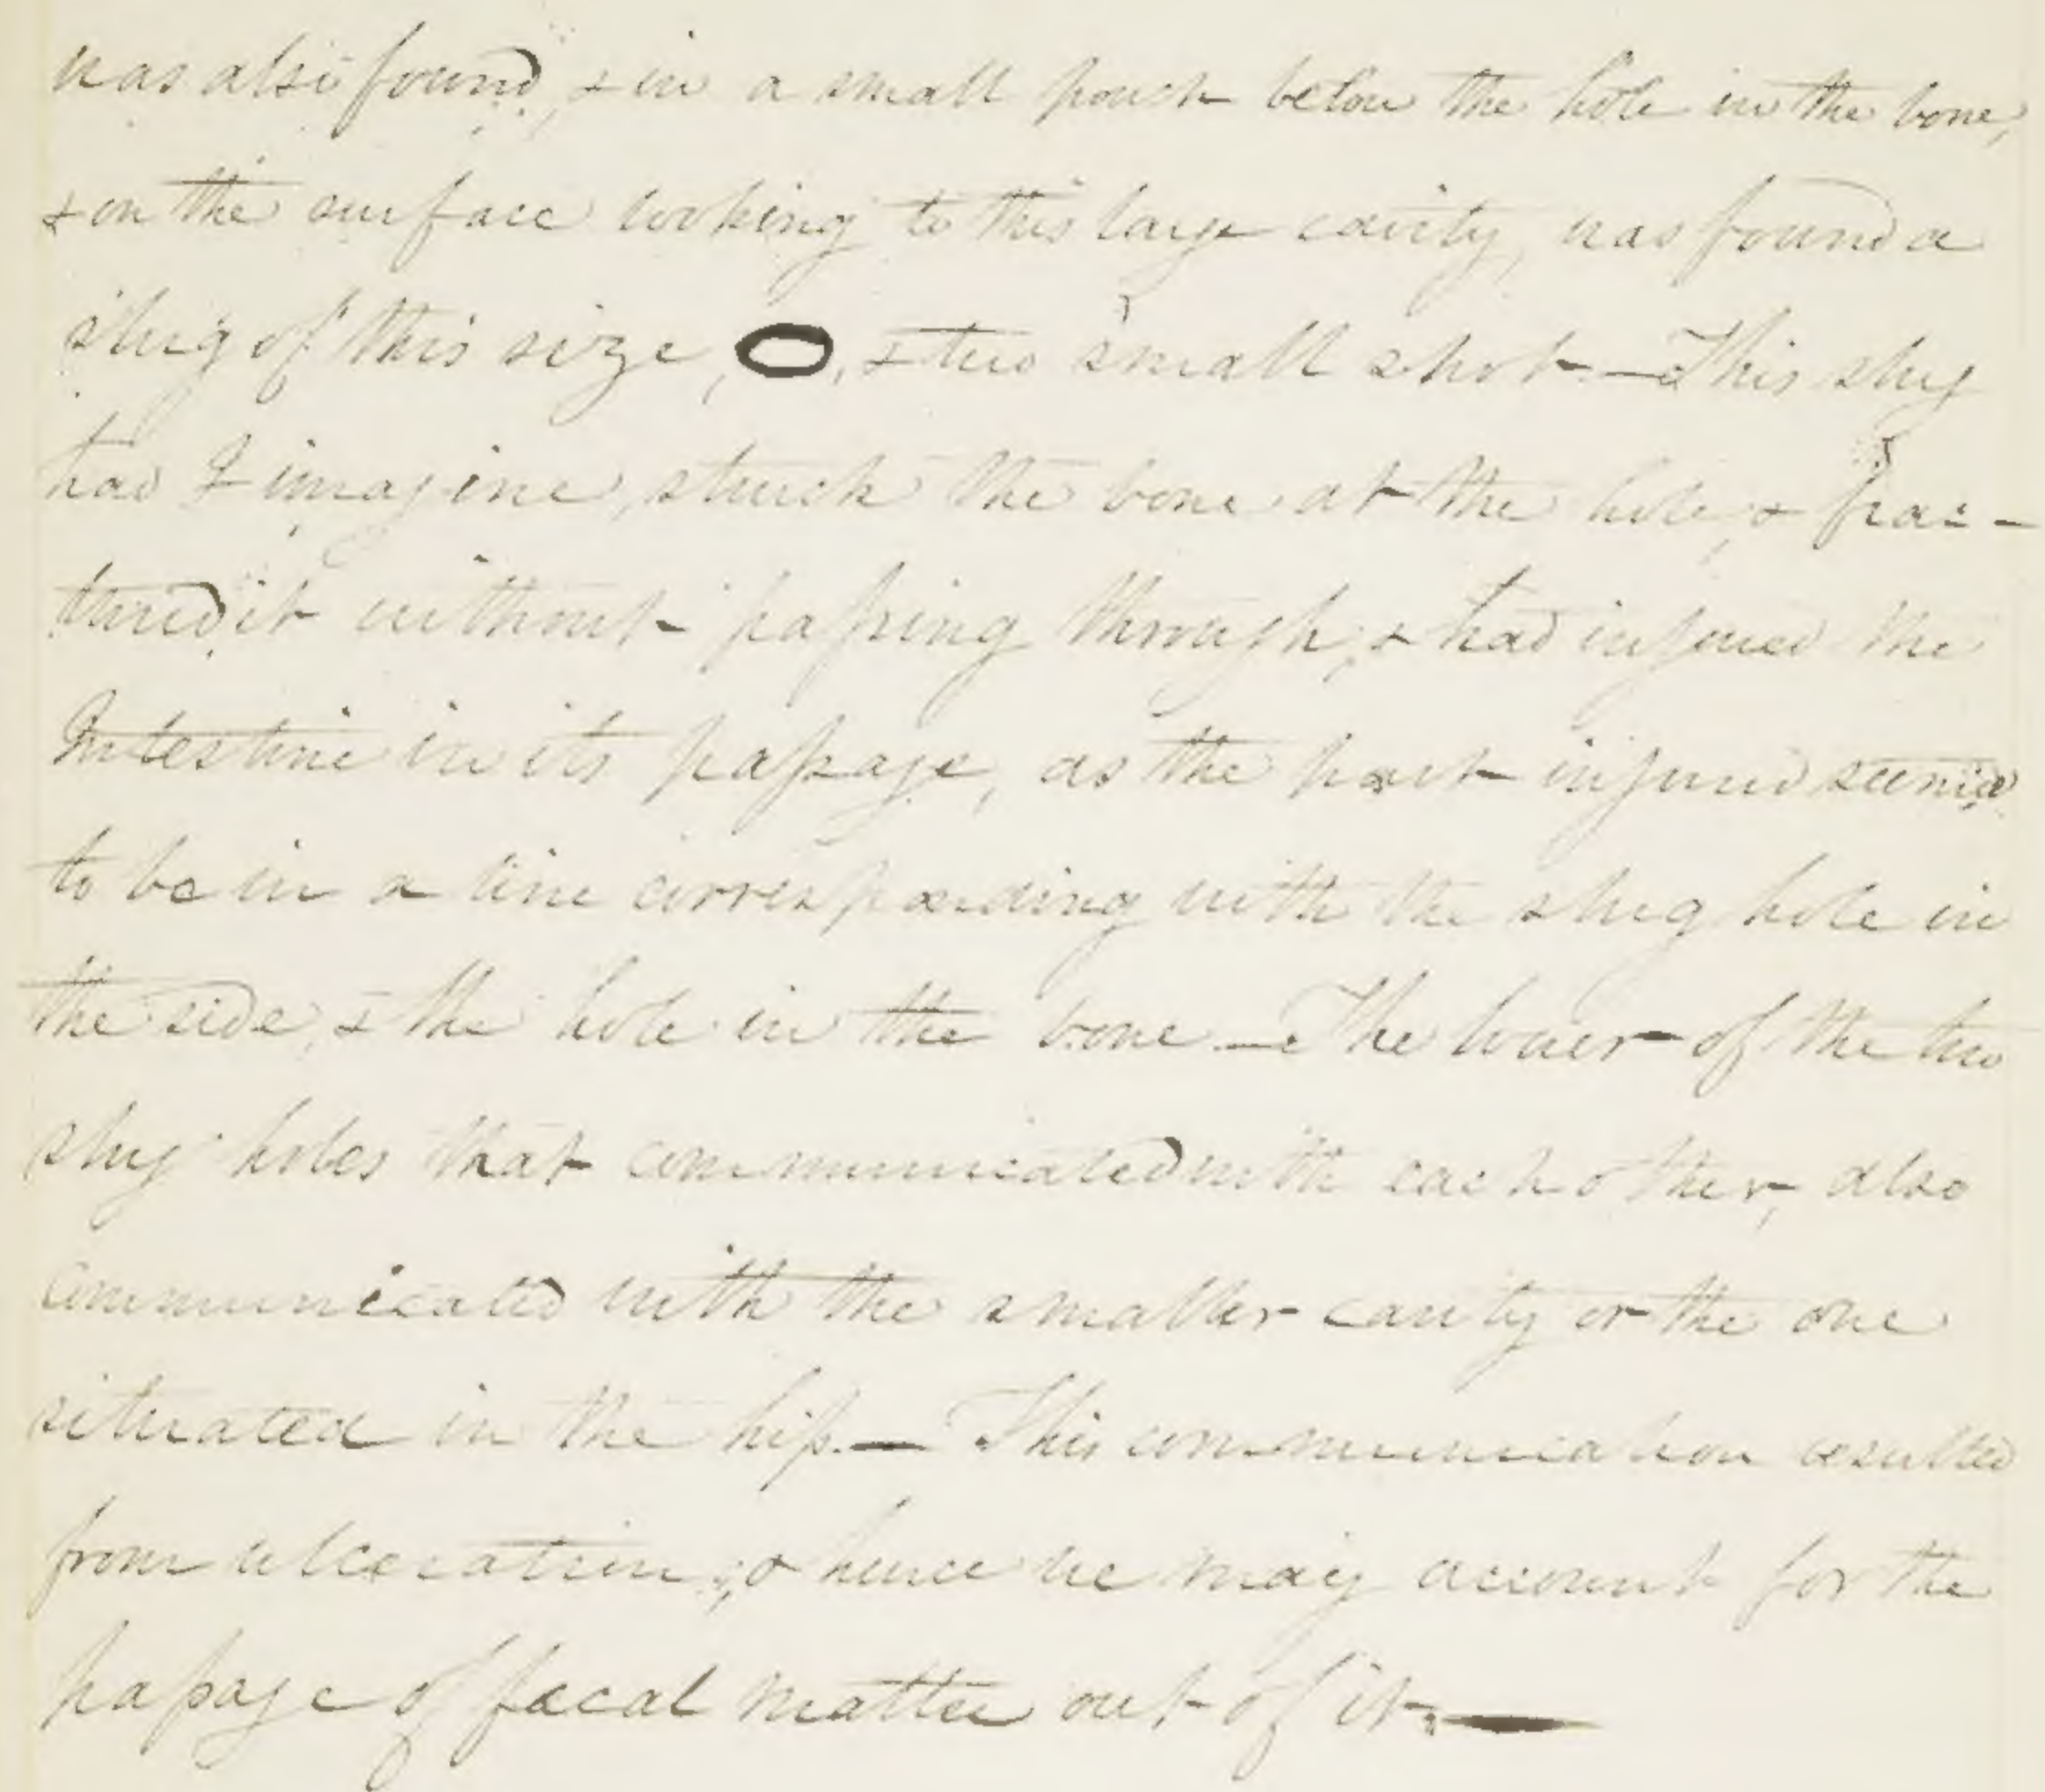 was also found, & in a small pouch below the hole in the bone,
& on the surface looking to this large cavity, was found a
slug of this size, O, & two small shot — This slug
had I imagine, struck the bone at the hole, & frac-
tured it without paſsing through, & had injured the
Intestine in its paſsage, as the part injured seemed
to be in a line corresponding with the slug hole in
the side, & the hole in the bone — The lower of the two
slug holes that communicated with each other, also
communicated with the smaller cavity or the one
situated in the hip. — This communication resulted
from ulceration; & hence we may account for the
paſsage of fæcal matter out of it. —